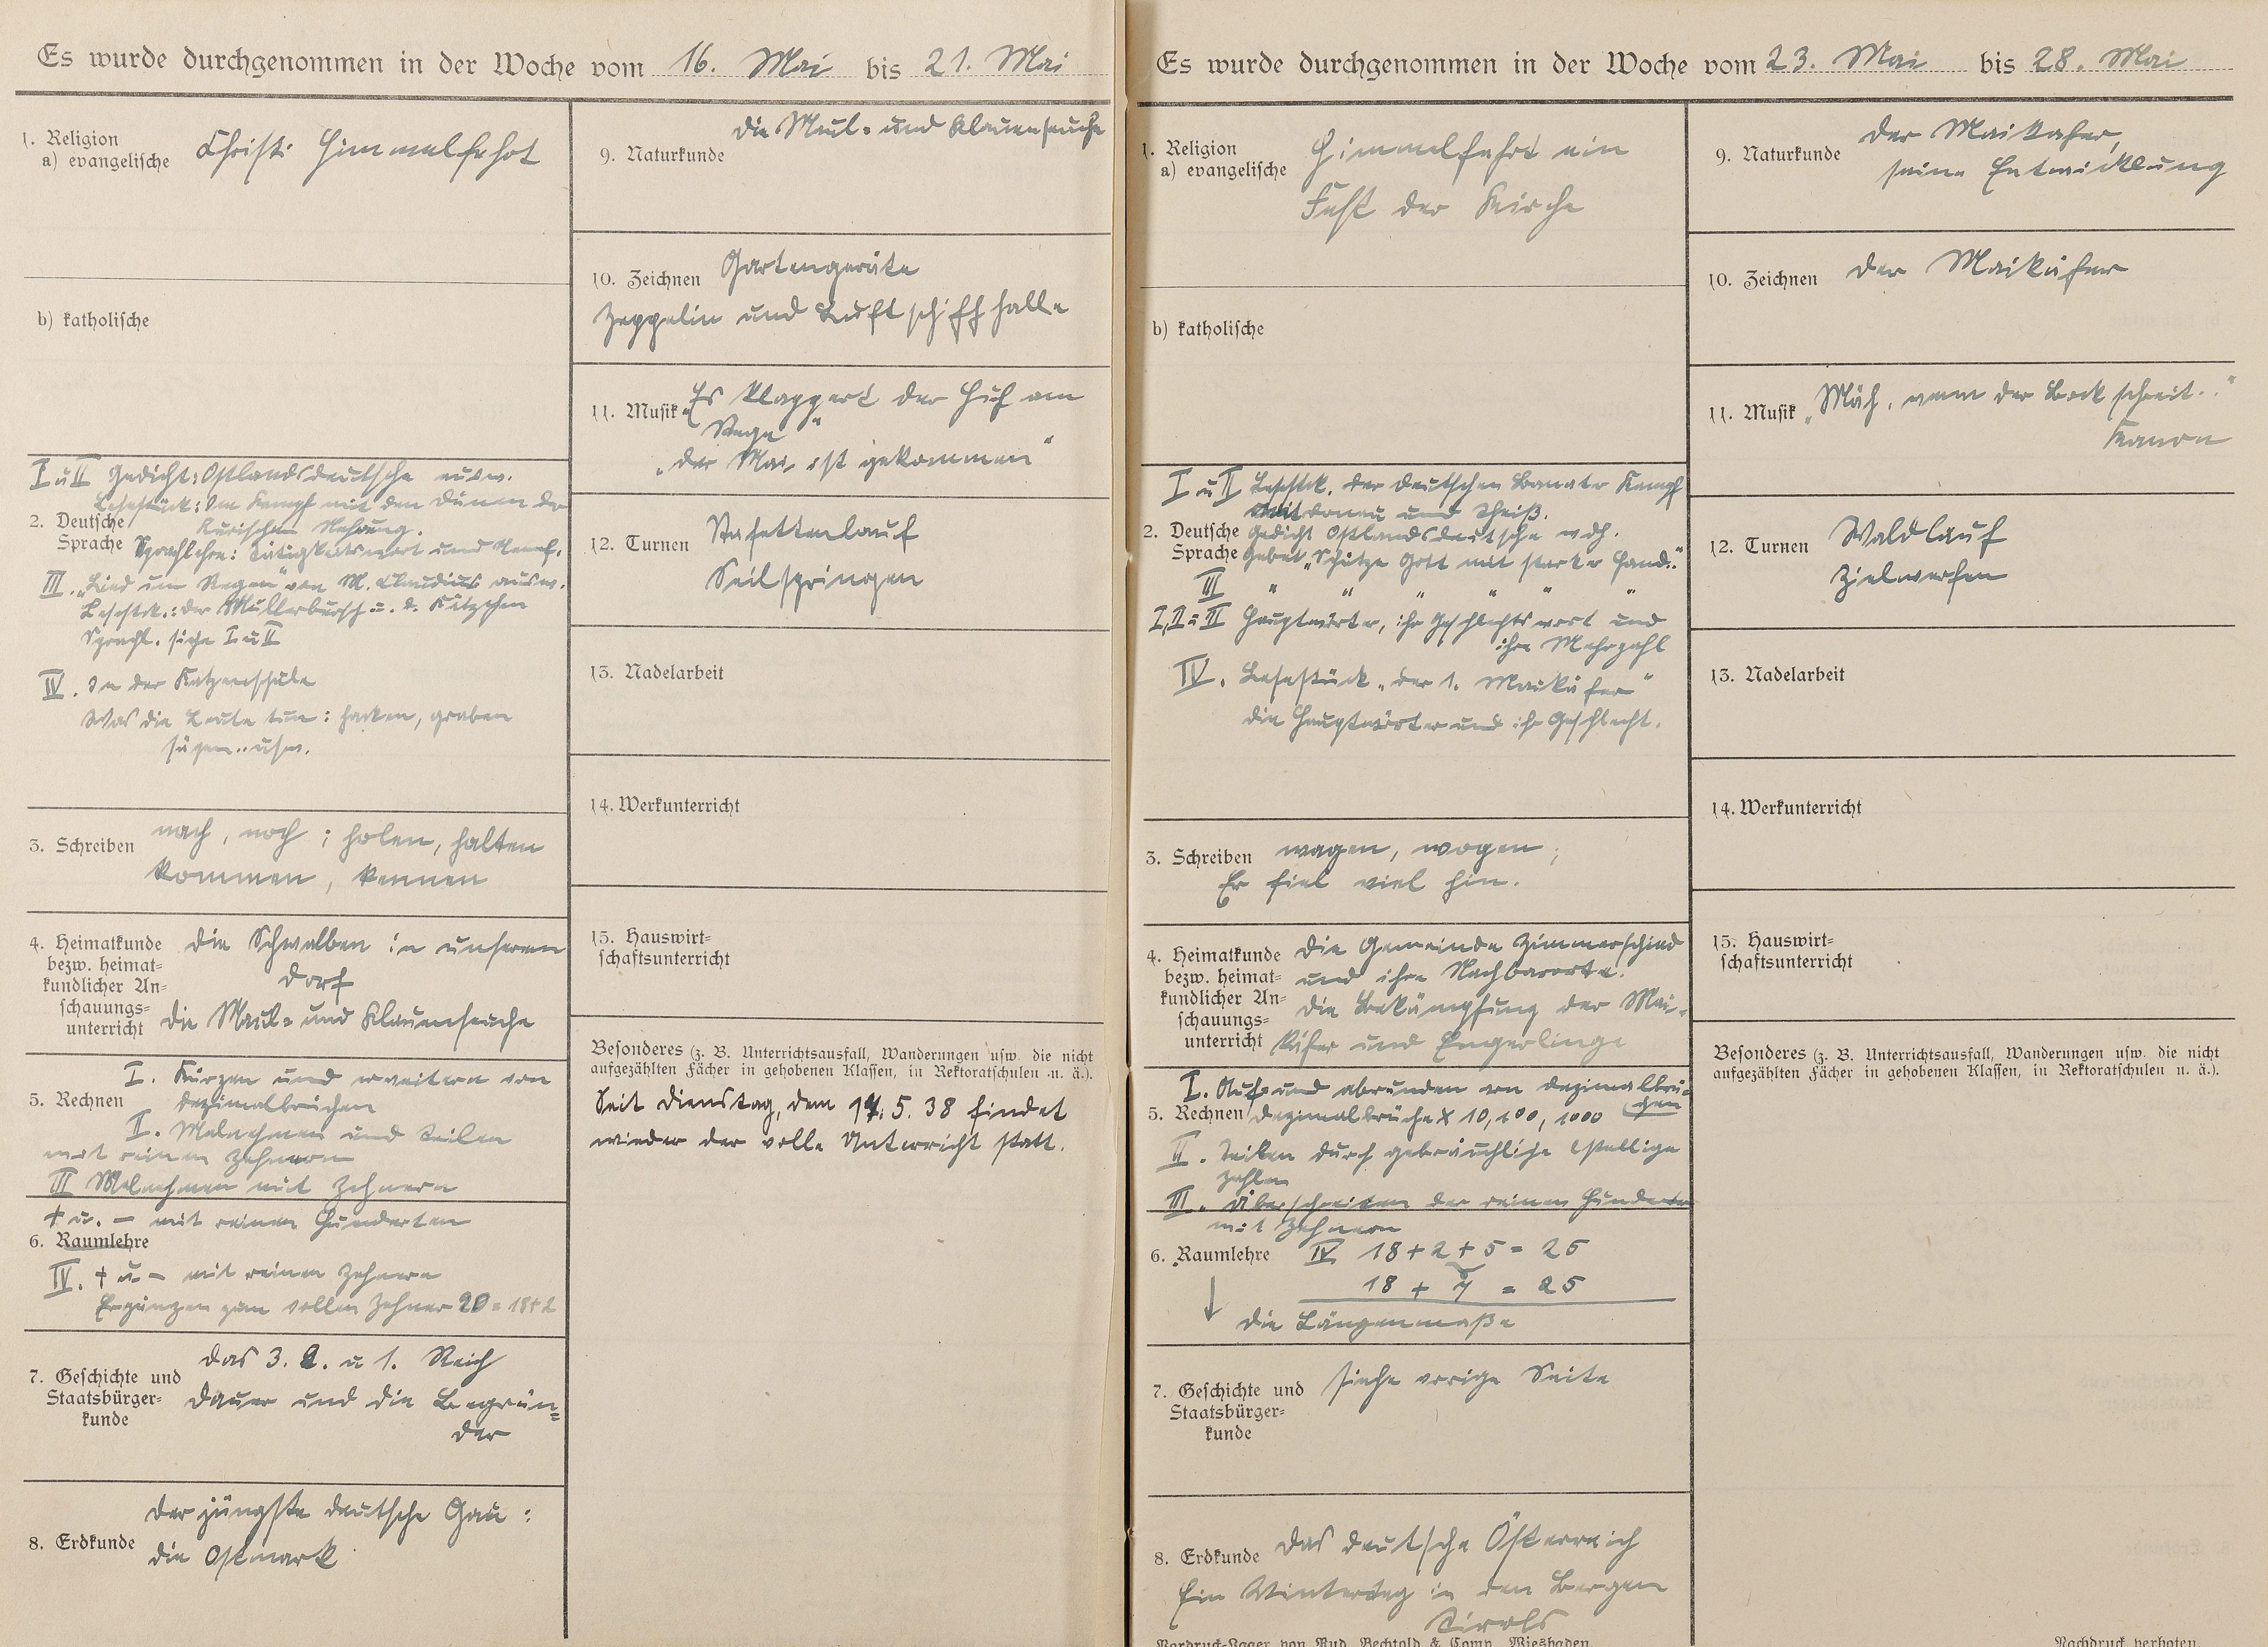 Es wurde durchgenommen in der Woche vom 16. Mai bis 21. Mai
1. Religion
a) evangelische
Christi Himmelfahrt
b) katholische
I u II Gedicht: Ostlandsdeutsche ausw.
Lesestück: Im Kampf mit den Dünen der
Kurischen Nehrung.
2. Deutsche
Sprache
Sprachlehre: Tätigkeitswort und
III. „Lied im Regen" von M. Claudius ausw.
Lesestck.: Der Müllerbursch u. d. Kätzchen
Sprachl. siehe I u II
IV. In der Katzenschule
Was die Leute tun: hacken, graben
sägen.. usw.
3. Schreiben
nach, noch; holen, halten
kommen, kennen
4. Heimatkunde
bezw. heimat=
kundlicher An=
schauungs=
unterricht
Die Schwalben in unserem
Dorf
Die Maul= und Klauenseuche
5. Rechnen
I. Kürzen und erweitern von
Dezimalbrüchen
II. Malnehmen und Teilen
mit reinen Zehnern
III Malnehmen mit Zehnern
+ u. - mit reinen Hunderten
6. Raumlehre
IV. + u - mit reinen Zehnern
Ergänzen zum vollen Zehner 20 = 18+2
7. Geschichte und
Staatsbürger=
kunde
Das 3. 2. u 1. Reich
Dauer und die Begrün=
der
8. Erdkunde
Der jüngste deutsche Gau:
die Ostmark
9. Naturkunde
Die Maul= und Klauenseuche
10. Zeichnen
Gartengeräte
Zeppelin und Luftschiffhalle
11. Musik
„Es klappert der Huf am
Stege"
„Der Mai ist gekommen"
12. Turnen
Stafettenlauf
Seilspringen
13. Nadelarbeit
14. Werkunterricht
15. Hauswirt=
schaftsunterricht
Besonderes (z. B. Unterrichtsausfall, Wanderungen usw. die nicht
aufgezählten Fächer in gehobenen Klassen, in Rektoratschulen u. ä.).
Seit Dienstag, dem 17. 5. 38 findet
wieder der volle Unterricht statt.
Es wurde durchgenommen in der Woche vom 23. Mai bis 28. Mai
1. Religion
a) evangelische
Himmelfahrt ein
Fest der Kirche
b) katholische
I u II Lesestck. Der deutschen Banater Kampf
mit Donau und Theiß.
2. Deutsche
Sprache
Gedicht Ostlandsdeutsche wdh.
Gebet „Schütze Gott mit starker Hand.."
III " " " " "
I, II u III Hauptwörter, ihr Geschlechtswort und
ihre Mehrzahl
IV. Lesestück „Der 1. Maikäfer"
Die Hauptwörter und ihr Geschlecht.
3. Schreiben
wagen, wogen;
Er fiel viel hin.
4. Heimatkunde
bezw. heimat=
kundlicher An=
schauungs=
unterricht
Die Gemeinde Zimmerschied
und ihre Nachbarorte.
Die Bekämpfung der Mai=
käfer und Engerlinge
5. Rechnen
I. Auf= und abrunden von Dezimalbrü=
chen
Dezimalbrüche x 10, 100, 1000
II. Teilen durch gebräuchliche 2stellige
Zahlen
III. Überschreiten der reinen Hunderter
mit Zehnern
6. Raumlehre
IV 18 + 2 + 5 = 25
18 + 7 = 25
Die Längenmaße
7. Geschichte und
Staatsbürger=
kunde
siehe vorige Seite
8. Erdkunde
Das deutsche Österreich
Ein Wintertag in den Bergen
Tirols
Vordruck-Lager von Rud. Bechtold & Comp. Wiesbaden
9. Naturkunde
Der Maikäfer,
seine Entwicklung
10. Zeichnen
Der Maikäfer
11. Musik
„Mäh, wenn der Bock schreit.."
Kanon
12. Turnen
Waldlauf
Zielwerfen
13. Nadelarbeit
14. Werkunterricht
15. Hauswirt=
schaftsunterricht
Besonderes (z. B. Unterrichtsausfall, Wanderungen usw. die nicht
aufgezählten Fächer in gehobenen Klassen, in Rektoratschulen u. ä.).
Nachdruck verboten.